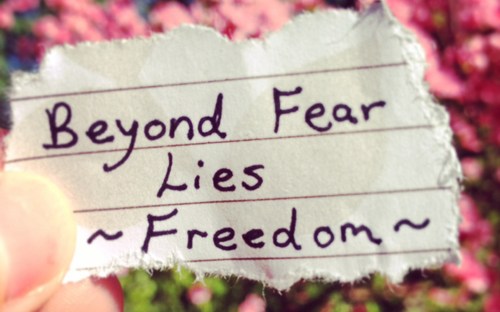 Beyond Fear
Lies
~ Freedom ~